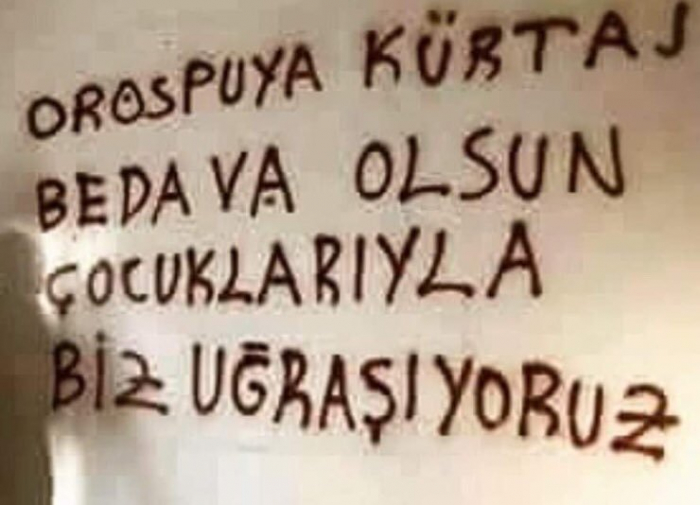 OROSPUYA KÜRTAJ
BEDAVA OLSUN
ÇOCUKLARIYLA
BİZ UĞRAŞIYORUZ